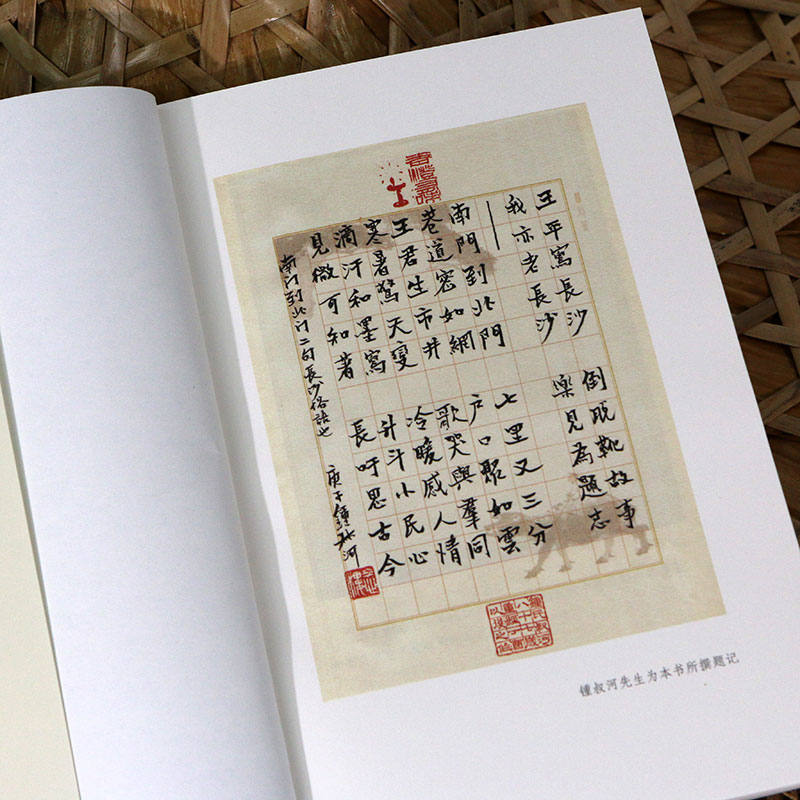 王平寫長沙 倒脫靴故事
我亦老長沙 樂見為題志
南門到北門 七里又三分
巷道密如網 戶口聚如雲
王君生市井 歌哭與羣同
寒暑驚天變 冷暖感人情
滴汗和墨寫 升斗小民心
見微可知著 長吁思古今
南门到北门二句長沙俗語也 庚子鍾叔河
锺叔河先生为本书所撰题记